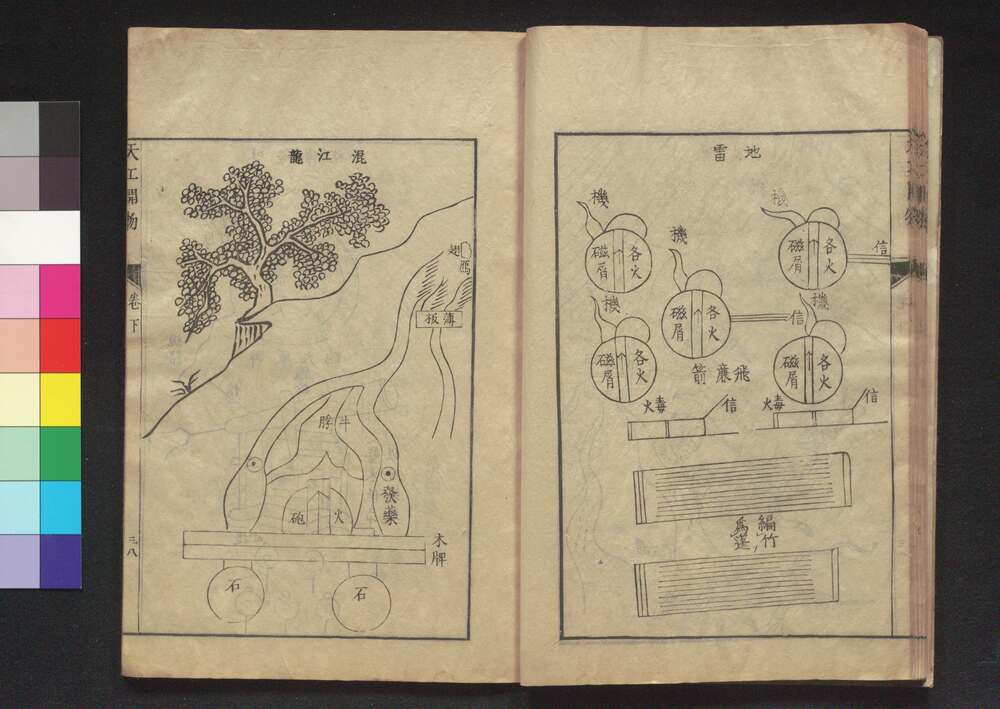 地雷
機
各火
磁屑
信
機
各火
磁屑
機
各火
磁屑
信
機
各火
磁屑
機
各火
磁屑
飛廉箭
信
毒火
信
毒火
編竹
為蓬
混江龍
薄板
牛脬
發藥
火砲
木牌
石
石
天工開物
卷下
三八